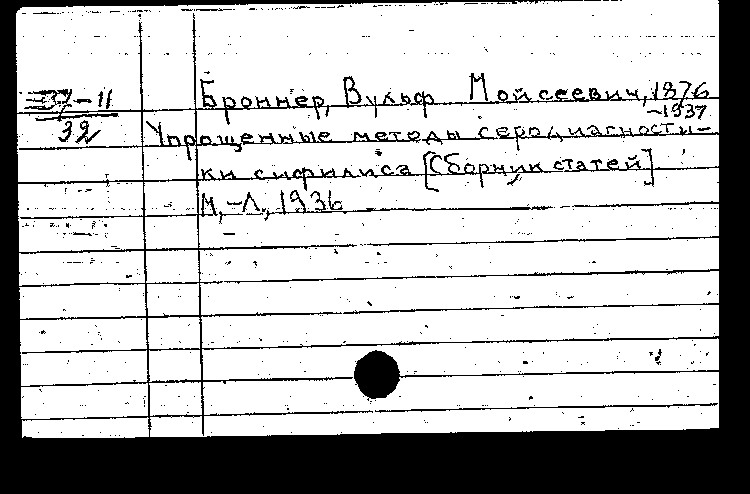 37-11
32
Броннер, Вульф Мойсеевич, 1876
-1937
Упрощенные методы серодиагности-
ки сифилиса [Сборник статей].
М,-Л, 1936